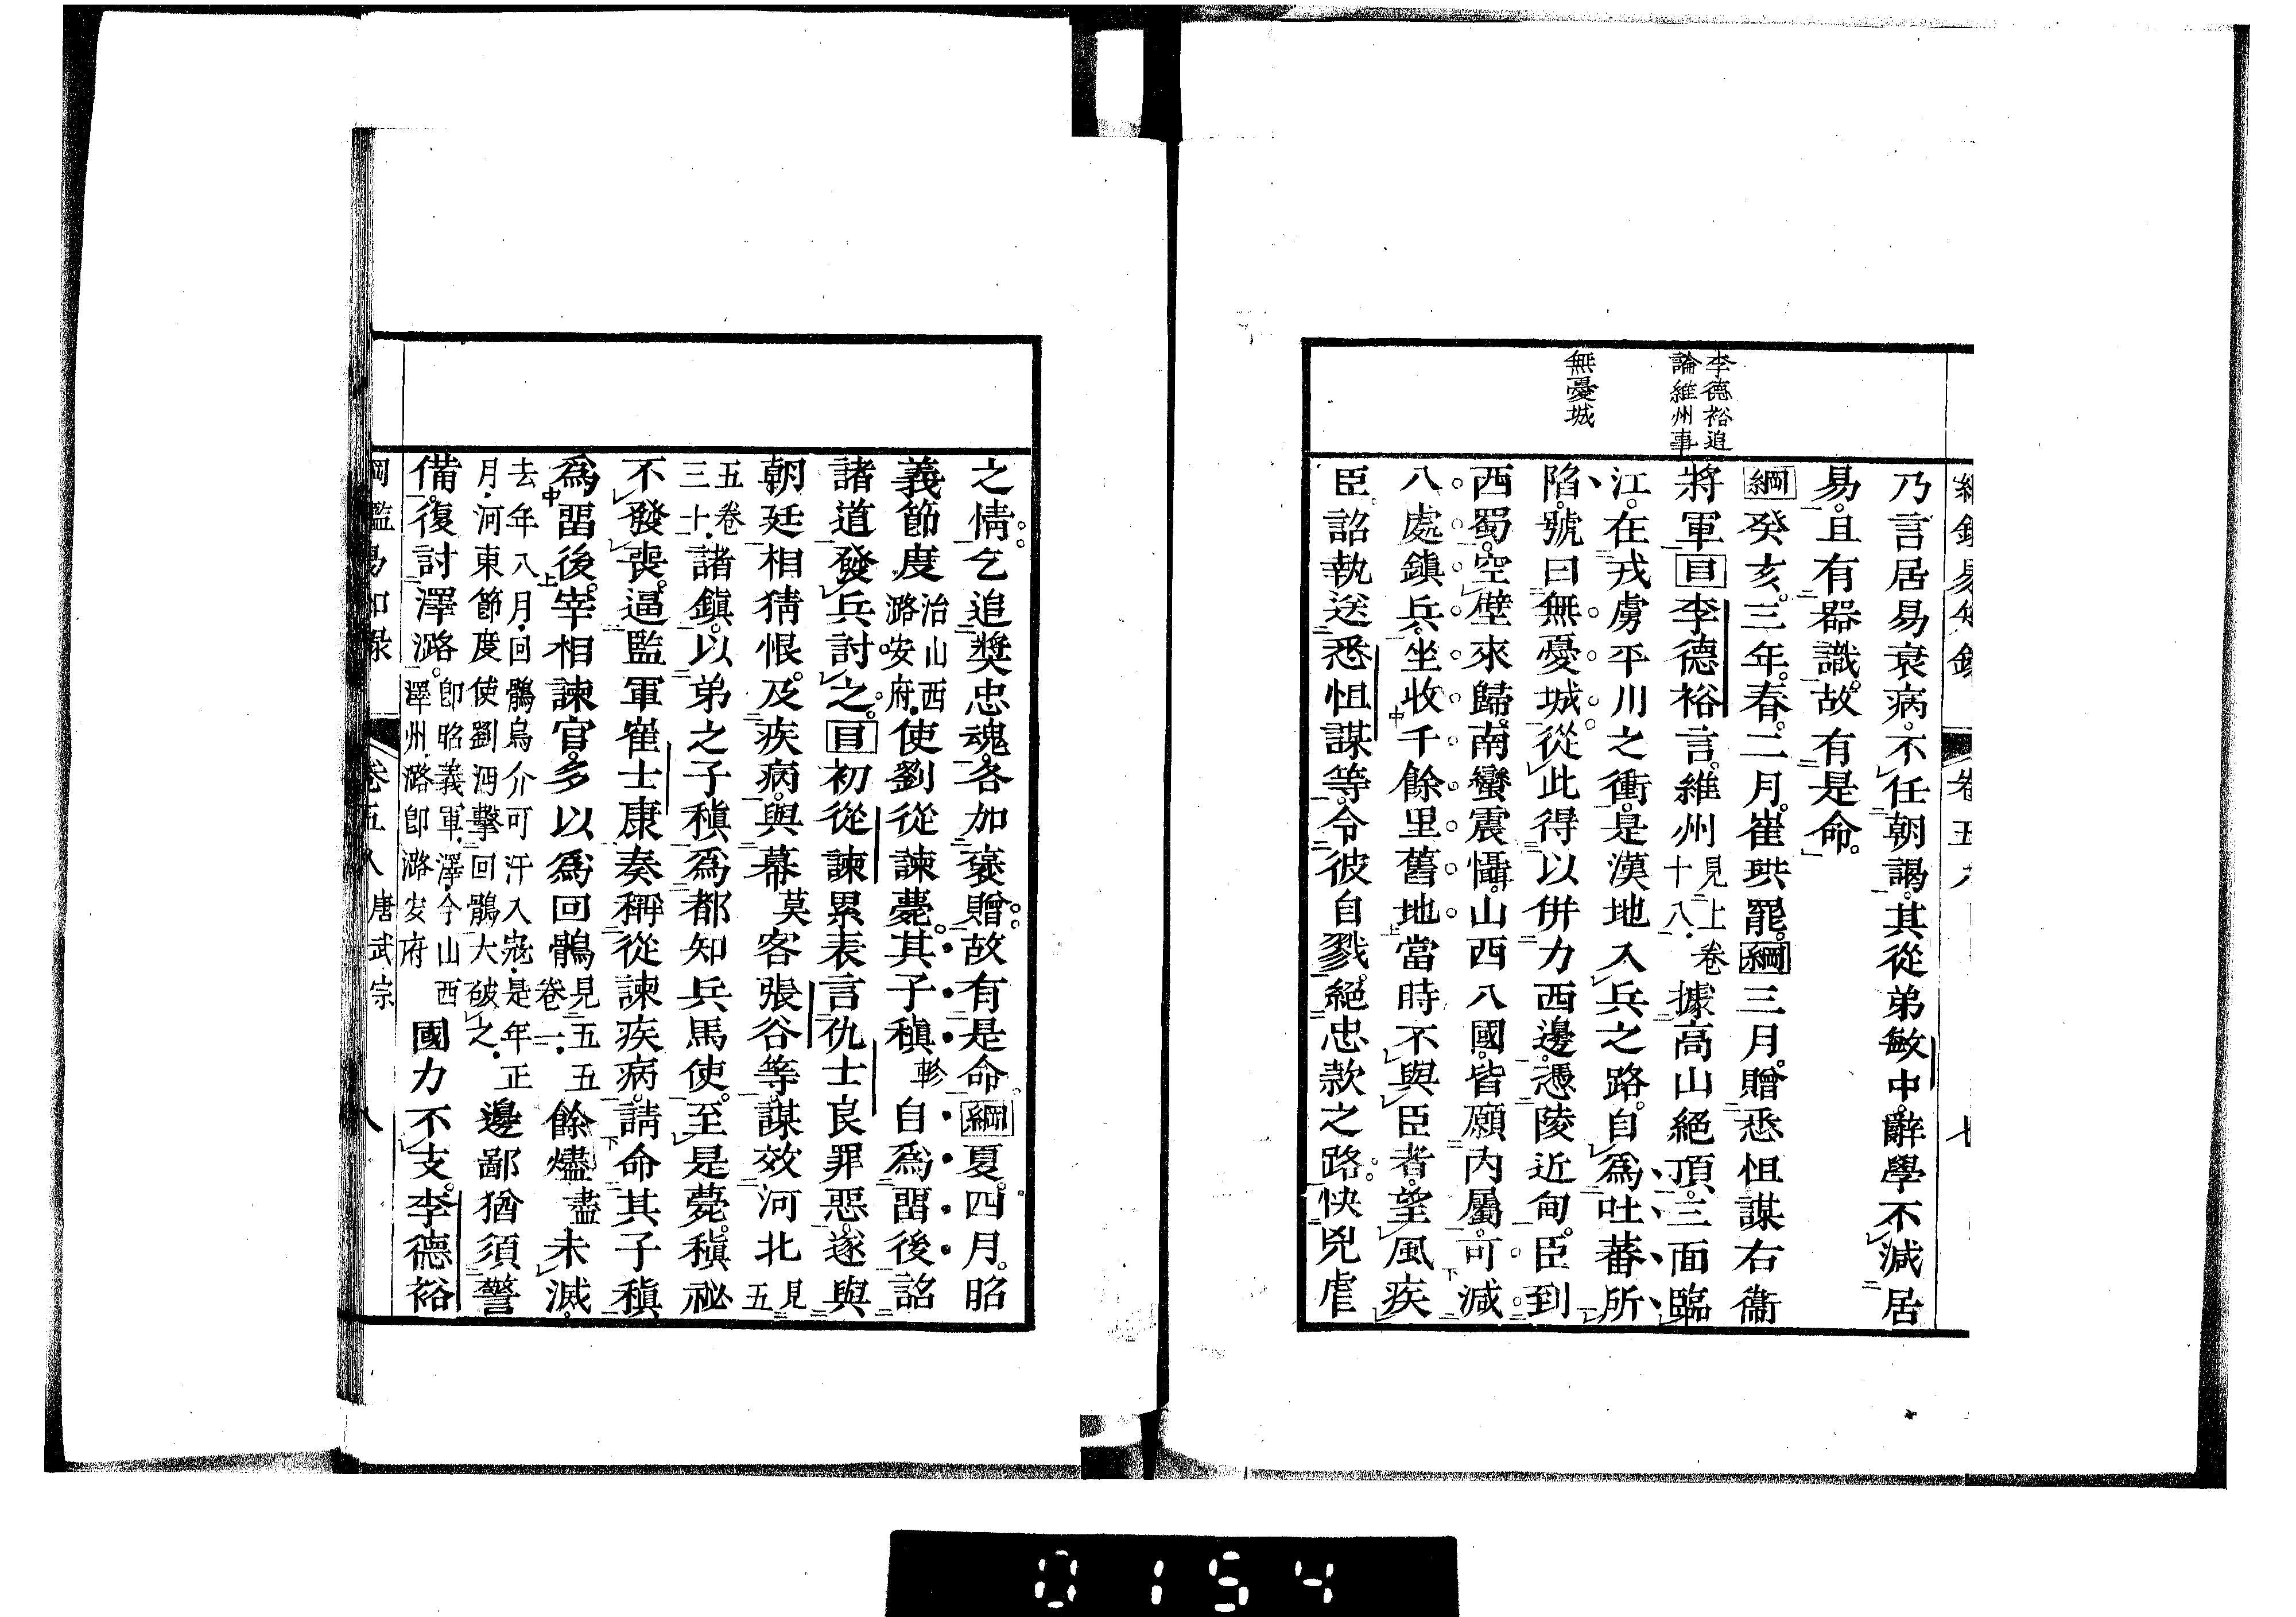 李德裕追
論維州事
無憂城
乃言居易衰病。不任朝謁。其從弟敏中。辭學不減居
易。且有器識。故有是命。
綱癸亥。三年。春。二月。崔珙罷。綱三月。贈悉怛謀右衞
將軍目李德裕言。維州見上卷十八。據高山絕頂。三面臨
江。在戎虜平川之衝。是漢地入兵之路。自爲吐蕃所
陷。號曰無憂城。從此得以併力西邊。憑陵近甸。臣到
西蜀。空壁來歸。南蠻震懾。山西八國。皆願內屬。可減
八處鎮兵。坐收千餘里舊地。當時不與臣者。望風疾
臣。詔執送悉怛謀等。令彼自戮。絕忠款之路。快兇虐
之情。乞追奬忠魂。各加褒贈。故有是命。綱夏。四月。昭
義節度治山西潞安府。使劉從諫薨。其子稹軫自爲畱後。詔
諸道發兵討之。目初從諫累表言仇士良罪惡。遂與
朝廷相猜恨。及疾病。與幕莫客張谷等。謀效河北見五
五卷三十。諸鎮。以弟之子稹爲都知兵馬使。至是薨。稹祕
不發喪。逼監軍崔士康奏稱從諫疾病。請命其子稹
爲畱後。宰相諫官。多以爲回鶻見五五卷一。餘燼盡未滅。
去年八月。回鶻烏介可汗入寇。是年正月。河東節度使劉沔擊回鶻大破之。邊鄙猶須警
備。復討澤潞。卽昭義軍。澤今山西澤州。潞卽潞安府國力不支。李德裕
唐武宗